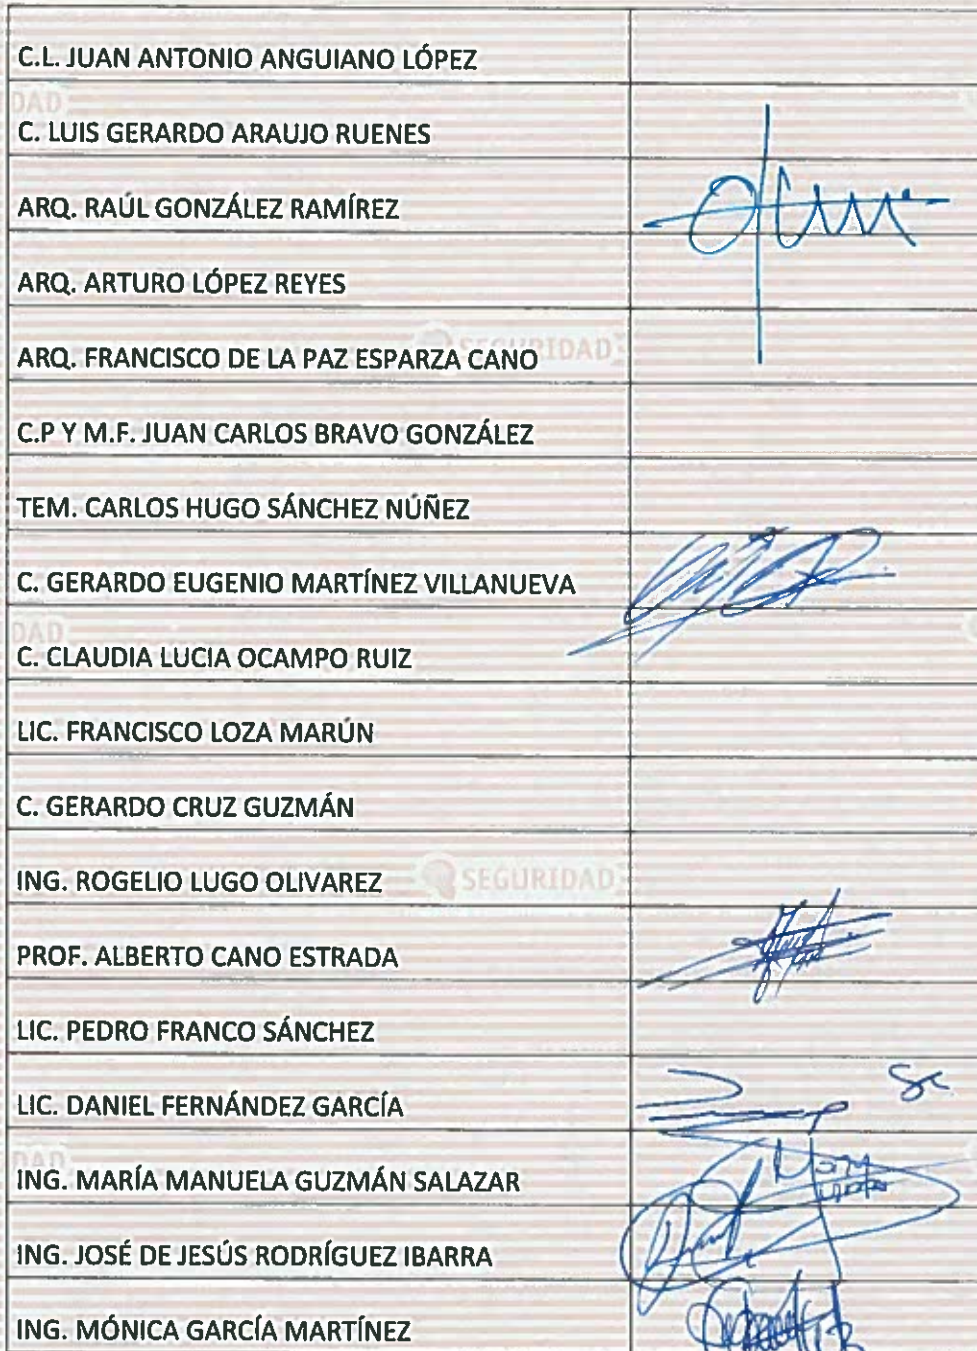 C.L. JUAN ANTONIO ANGUIANO LÓPEZ
DAD
C. LUIS GERARDO ARAUJO RUENES
ARQ. RAÚL GONZÁLEZ RAMÍREZ
ARQ. ARTURO LÓPEZ REYES
SEGURIDAD
ARQ. FRANCISCO DE LA PAZ ESPARZA CANO
C.P Y M.F. JUAN CARLOS BRAVO GONZÁLEZ
TEM. CARLOS HUGO SÁNCHEZ NÚÑEZ
C. GERARDO EUGENIO MARTÍNEZ VILLANUEVA
DAD
C. CLAUDIA LUCIA OCAMPO RUIZ
LIC. FRANCISCO LOZA MARÚN
C. GERARDO CRUZ GUZMÁN
ING. ROGELIO LUGO OLIVAREZ
SEGURIDAD
PROF. ALBERTO CANO ESTRADA
LIC. PEDRO FRANCO SÁNCHEZ
LIC. DANIEL FERNÁNDEZ GARCÍA
DAD
ING. MARÍA MANUELA GUZMÁN SALAZAR
ING. JOSÉ DE JESÚS RODRÍGUEZ IBARRA
ING. MÓNICA GARCÍA MARTÍNEZ